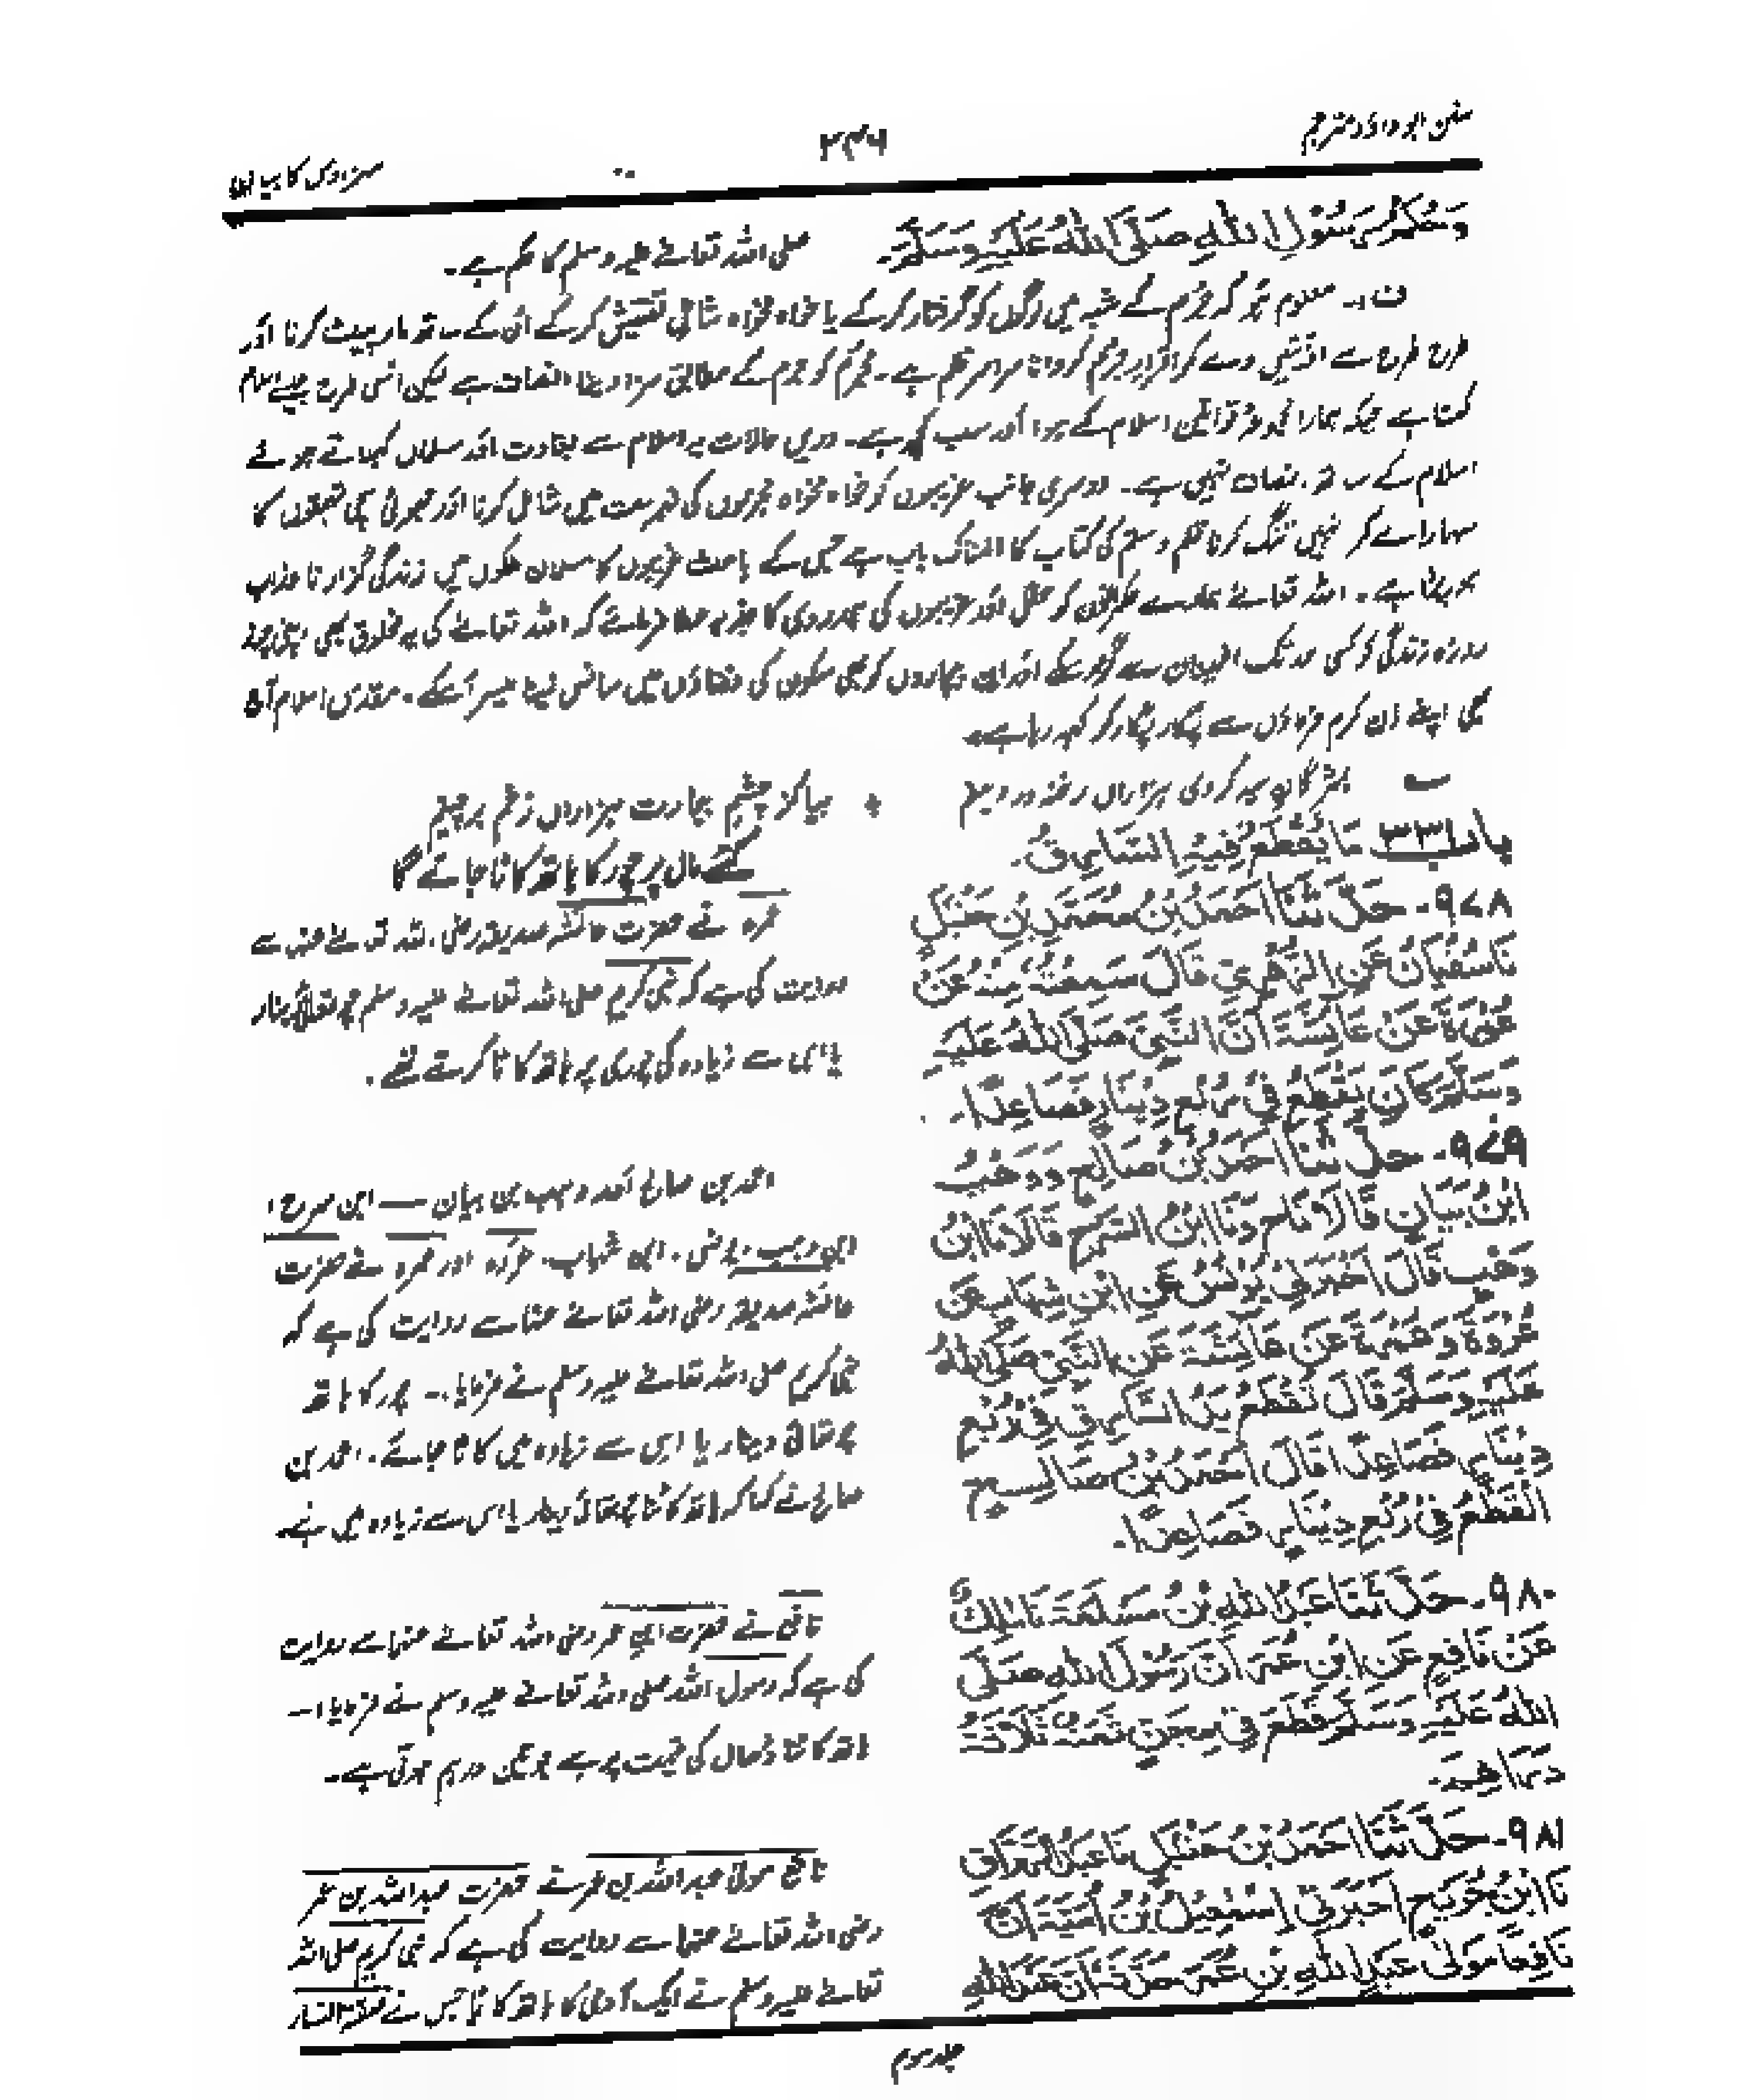 سنن ابوداؤد مترجم
۲۳۶
سزاؤں کا بیان
وَحُكْمُ رَسُوْلِ اللهِ صَلَّى اللهُ عَلَيْهِ وَسَلَّمَ۔
صلی اللہ تعالےٰ علیہ وسلم کا حکم ہے۔
ف:۔ معلوم ہوا کہ جرم کے شبہ میں لوگوں کو گرفتار کرکے یا خواہ مخواہ شامل تفتیش کرکے اُن کے ساتھ مار پیٹ کرنا اور
طرح طرح سے اذیتیں دے کر اقرارِ جرم کروانا سراسر ظلم ہے۔ مجرم کو جرم کے مطابق سزا دینا انصاف ہے لیکن اسی طرح جیسے اسلام
کہتا ہے جبکہ ہمارا مجموعۂ قوانین اسلام کے سوا اور سب کچھ ہے۔ دریں حالات یہ اسلام سے بغاوت اور مسلمان کہلاتے ہوئے
اسلام کے ساتھ انصاف نہیں ہے۔ دوسری جانب غریبوں کو خواہ مخواہ مجرموں کی فہرست میں شامل کرنا اور جھوٹی سچی تہمتوں کا
سہارا لے کر انہیں تنگ کرنا ظلم و ستم کی کتاب کا المناک باب ہے جس کے باعث غریبوں کا مسلمان ملکوں میں زندگی گزارنا عذاب
ہو رہا ہے۔ اللہ تعالےٰ ہمارے حکمرانوں کو عقل اور غریبوں کی ہمدردی کا جذبہ عطا فرمائے کہ اللہ تعالےٰ کی یہ مخلوق بھی اپنی چند
روزہ زندگی کو کسی حد تک اطمینان سے گزار سکے اور ان بیچاروں کو بھی سکون کی فضاؤں میں سانس لینا میسر آسکے۔ مقدس اسلام آج
بھی اپنے ان کرم فرماؤں سے پکار پکار کر کہہ رہا ہے۔
بمژگانِ سیہ کردی ہزاراں رخنہ در دینم
بیا کز چشمِ بیمارت ہزاراں زخم برچینم
باب ۳۳۱ مَا يُقْطَعُ فِيْهِ السَّارِقُ۔
کتنے مال پر چور کا ہاتھ کاٹا جائے گا
۹۷۸۔ حَدَّثَنَا اَحْمَدُ بْنُ مُحَمَّدِ بْنِ حَنْبَلٍ
نَا سُفْيَانُ عَنِ الزُّهْرِيِّ قَالَ سَمِعْتُهٗ مِنْهُ عَنْ
عَمْرَةَ عَنْ عَائِشَةَ اَنَّ النَّبِيَّ صَلَّى اللهُ عَلَيْهِ
وَسَلَّمَ كَانَ يَقْطَعُ فِيْ رُبْعِ دِيْنَارٍ فَصَاعِدًا۔
عمرہ نے حضرت عائشہ صدیقہ رضی اللہ تعالےٰ عنہا سے
روایت کی ہے کہ نبی کریم صلی اللہ تعالےٰ علیہ وسلم چوتھائی دینار
یا اس سے زیادہ کی چوری پر ہاتھ کاٹا کرتے تھے۔
۹۷۹۔ حَدَّثَنَا اَحْمَدُ بْنُ صَالِحٍ وَوَهْبُ
ابْنُ بَيَانٍ قَالَا نَا ح وَنَا ابْنُ السَّرْحِ قَالَا نَا ابْنُ
وَهْبٍ قَالَ اَخْبَرَنِيْ يُوْنُسُ عَنِ ابْنِ شِهَابٍ عَنْ
عُرْوَةَ وَعَمْرَةَ عَنْ عَائِشَةَ عَنِ النَّبِيِّ صَلَّى اللهُ
عَلَيْهِ وَسَلَّمَ قَالَ تُقْطَعُ يَدُ السَّارِقِ فِيْ رُبْعِ
دِيْنَارٍ فَصَاعِدًا قَالَ اَحْمَدُ بْنُ صَالِحٍ
الْقَطْعُ فِيْ رُبْعِ دِيْنَارٍ فَصَاعِدًا۔
احمد بن صالح اور وہب بن بیان — ابن سرح،
ابن وہب، یونس، ابن شہاب، عروہ اور عمرہ نے حضرت
عائشہ صدیقہ رضی اللہ تعالےٰ عنہا سے روایت کی ہے کہ
نبی کریم صلی اللہ تعالےٰ علیہ وسلم نے فرمایا:۔ چور کا ہاتھ
چوتھائی دینار یا اس سے زیادہ میں کاٹا جائے۔ احمد بن
صالح نے کہا کہ ہاتھ کاٹنا چوتھائی دینار یا اس سے زیادہ میں ہے۔
۹۸۰۔ حَدَّثَنَا عَبْدُ اللهِ بْنُ مَسْلَمَةَ نَا مَالِكٌ
عَنْ نَافِعٍ عَنِ ابْنِ عُمَرَ اَنَّ رَسُوْلَ اللهِ صَلَّى
اللهُ عَلَيْهِ وَسَلَّمَ قَطَعَ فِيْ مِجَنٍّ ثَمَنُهٗ ثَلَاثَةُ
دَرَاهِمَ۔
نافع نے حضرت ابن عمر رضی اللہ تعالےٰ عنہما سے روایت
کی ہے کہ رسول اللہ صلی اللہ تعالےٰ علیہ وسلم نے فرمایا:۔
ہاتھ کاٹنا ڈھال کی قیمت پر ہے جو تین درہم ہوتی ہے۔
۹۸۱۔ حَدَّثَنَا اَحْمَدُ بْنُ حَنْبَلٍ نَا عَبْدُ الرَّزَّاقِ
نَا ابْنُ جُرَيْجٍ اَخْبَرَنِيْ اِسْمٰعِيْلُ بْنُ اُمَيَّةَ اَنَّ
نَافِعًا مَوْلٰى عَبْدِ اللهِ بْنِ عُمَرَ حَدَّثَهٗ اَنَّ عَبْدَ اللهِ
نافع مولیٰ عبداللہ بن عمر نے حضرت عبداللہ بن عمر
رضی اللہ تعالےٰ عنہما سے روایت کی ہے کہ نبی کریم صلی اللہ
تعالےٰ علیہ وسلم نے ایک آدمی کا ہاتھ کاٹا جس نے صفۃ النساء
جلد سوم